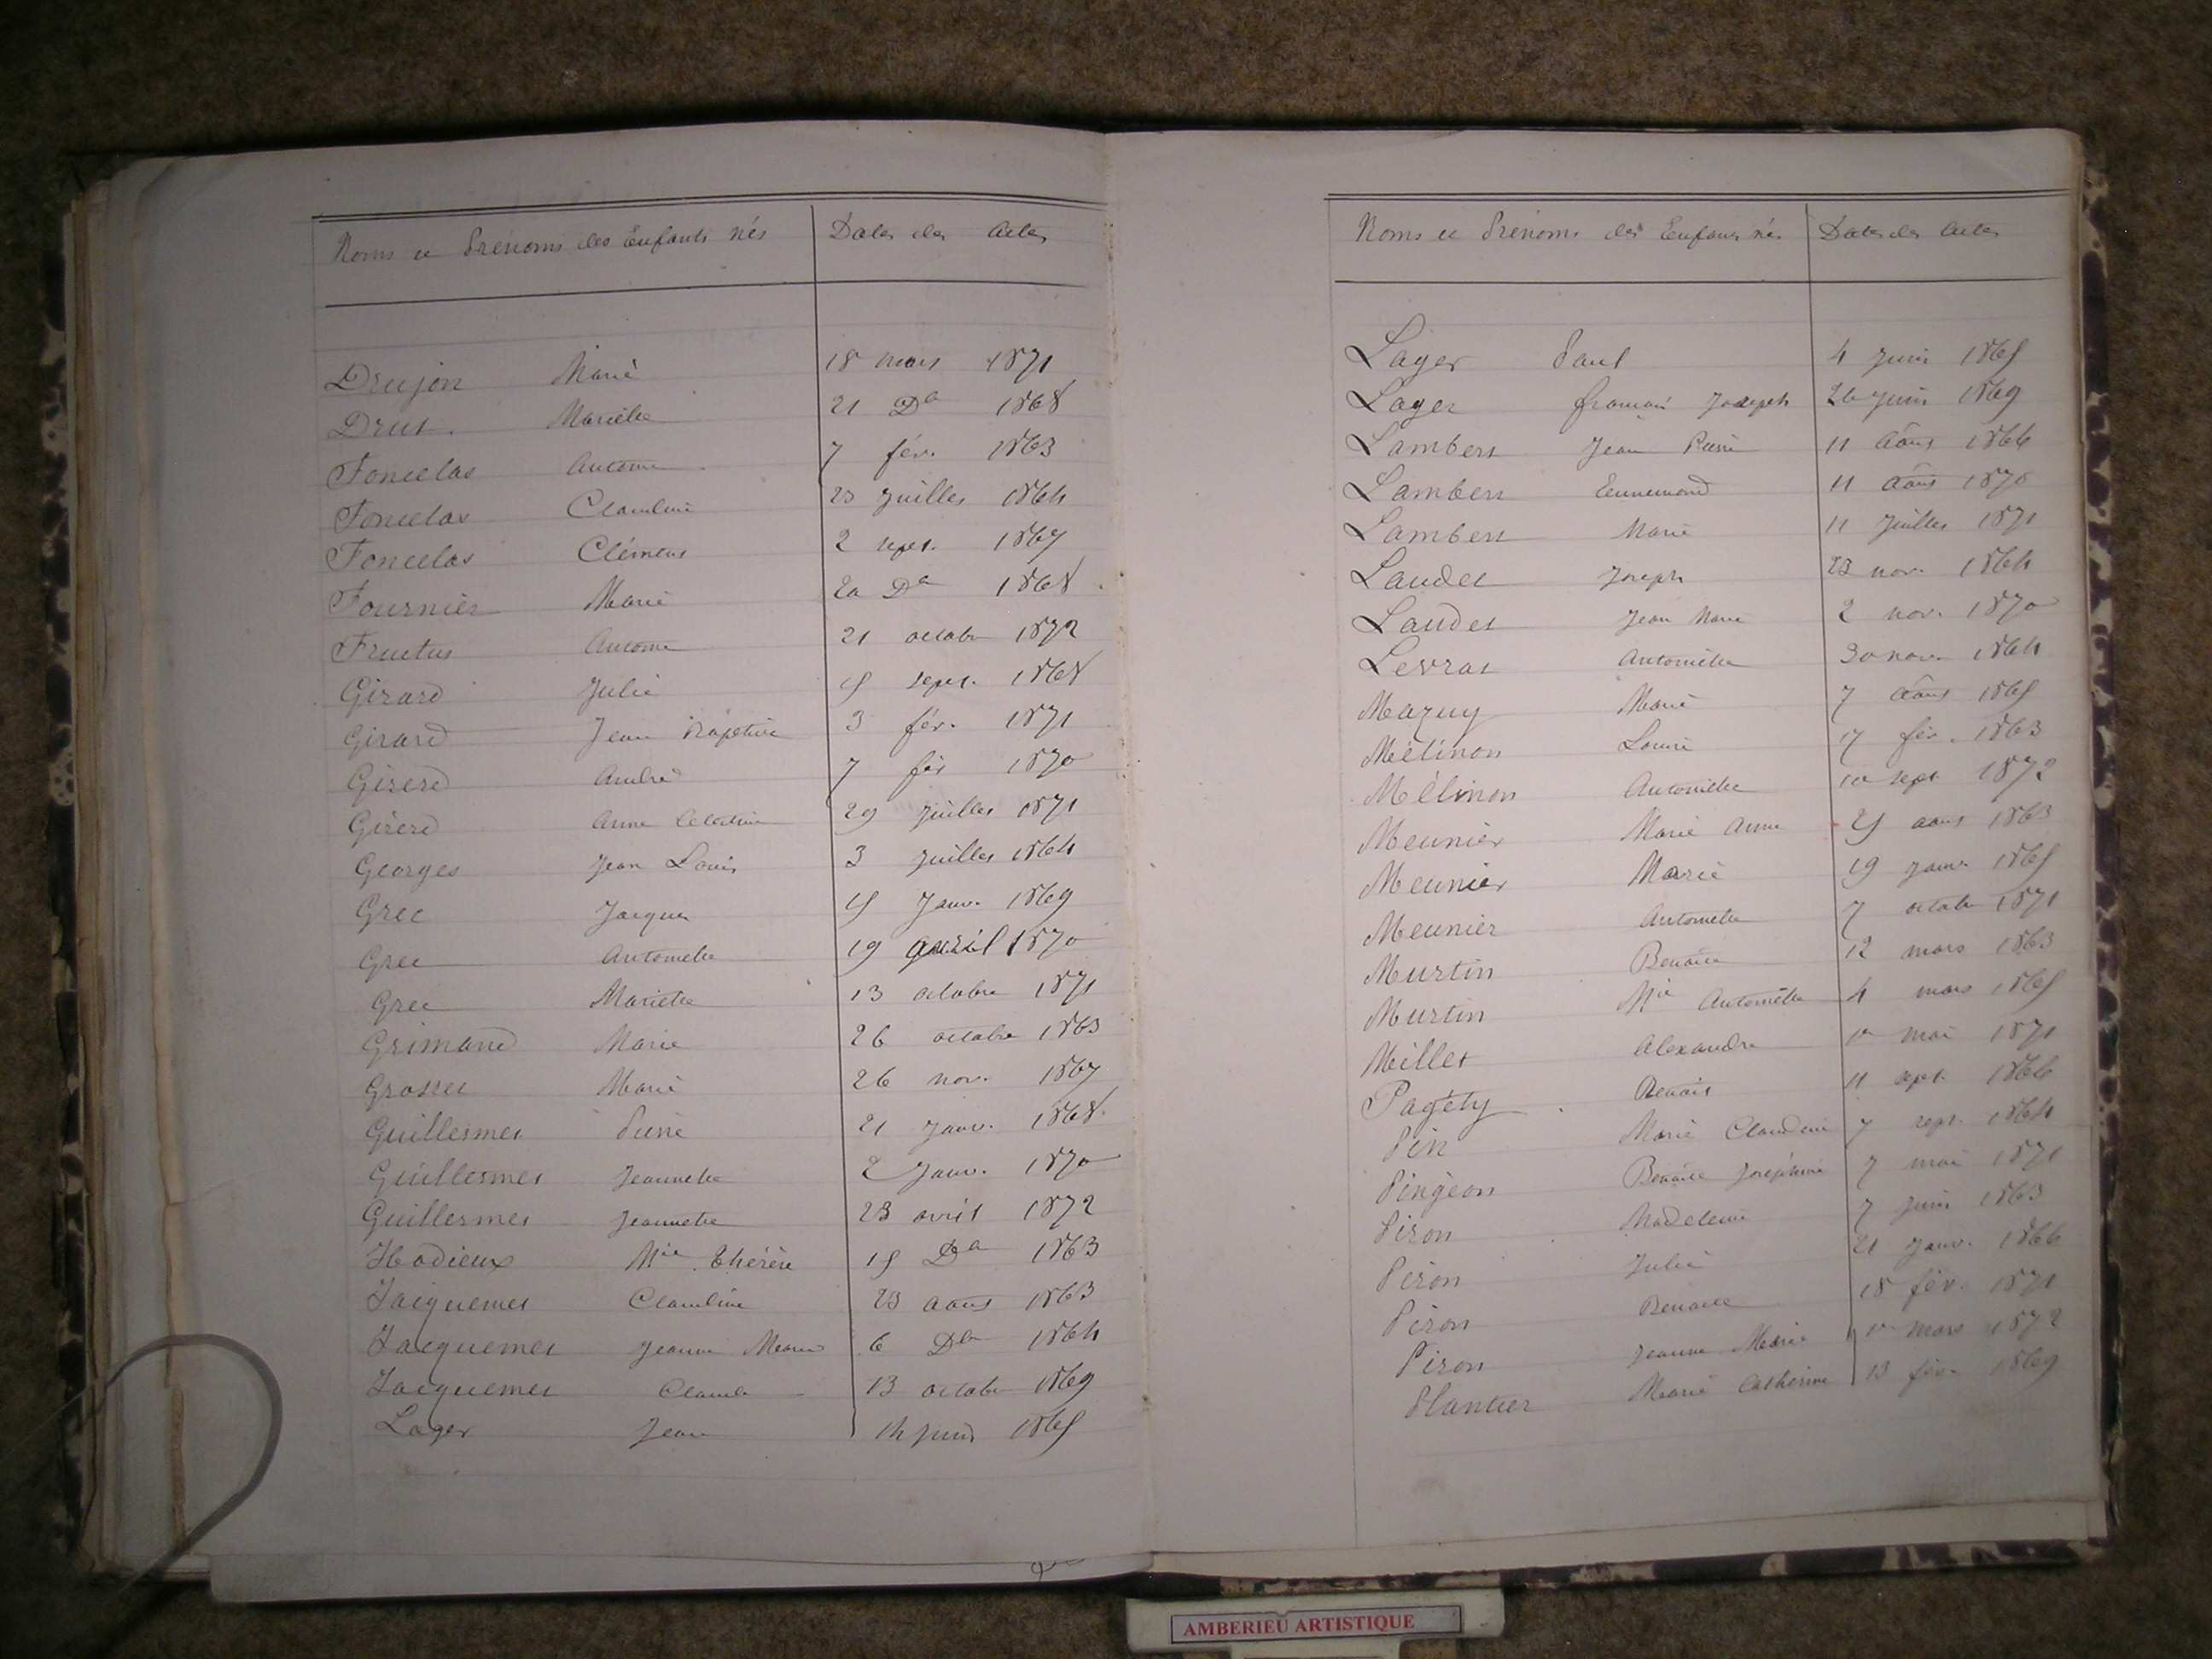 Noms et Prénoms des Enfants nés Dates des Actes
Drujon Marie 18 mars 1871
Drut Mariette 21 Da 1868
Foncelas Antoine 7 fév. 1863
Foncelas Claudine 23 juillet 1864
Foncelas Clément 2 sept. 1867
Fournier Marie 20 Da 1868
Fructus Antoine 21 octobre 1872
Girard Julie 5 sept. 1868
Girard Jean Baptiste 3 fév. 1871
Girerd André 7 fév 1870
Girerd Anne Célestine 29 juillet 1871
Georges Jean Louis 3 juillet 1864
Grec Jacques 5 Janv. 1869
Grec Antoinette 19 avril 1870
Grec Mariette 13 octobre 1871
Grimand Marie 26 octobre 1863
Grosset Marie 26 nov. 1867
Guillermet Pierre 21 janv. 1868
Guillermet Jeannette 2 Janv. 1870
Guillermet Jeannette 23 avril 1872
Hodieux Mie Thérèse 15 Da 1863
Jacquemet Claudine 23 août 1863
Jacquemet Jeanne Marie 6 Da 1864
Jacquemet Claude 13 octobre 1869
Lager Jean 14 juin 1865
Noms et Prénoms des Enfants nés Dates des Actes
Lager Paul 4 juin 1865
Lager François Joseph 26 juin 1869
Lambert Jean Pierre 11 août 1866
Lambert Ennemond 11 août 1870
Lambert Marie 11 juillet 1871
Laudet Joseph 23 nov. 1864
Laudet Jean Marie 2 nov. 1870
Levrat Antoinette 30 nov. 1864
Mazuy Marie 7 août 1865
Mélinon Louise 17 fév. 1863
Mélinon Antoinette 10 sept 1872
Meunier Marie Anne 25 août 1863
Meunier Marie 19 janv. 1865
Meunier Antoinette 7 octob 1871
Murtin Benoite 12 mars 1863
Murtin Mie Antoinette 4 mars 1865
Millet Alexandre 1er mai 1871
Pagéty Benoit 11 sept. 1866
Pin Marie Claudine 7 sept. 1864
Pingeon Benoite Joséphine 7 mai 1871
Piron Madeleine 7 juin 1863
Piron Julie 21 janv. 1866
Piron Benoite 18 fév. 1871
Piron Jeanne Marie 1er mars 1872
Plantier Marie Catherine 13 fév. 1869
AMBERIEU ARTISTIQUE